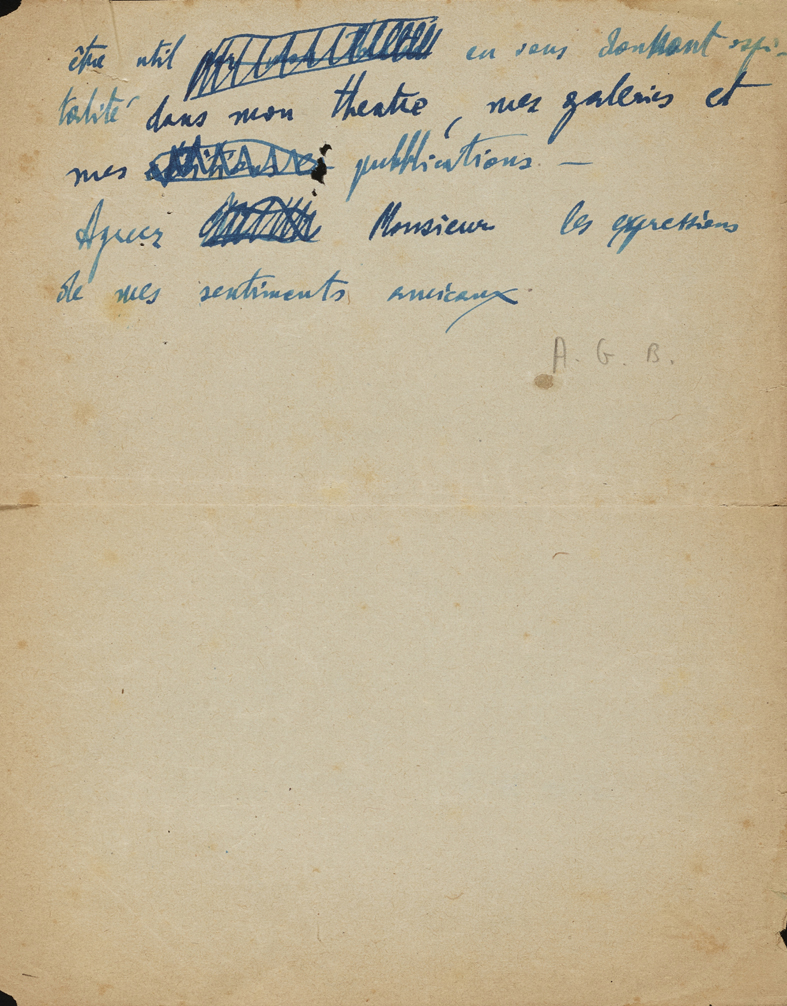 être util en vous donnant ospi-
talité dans mon theatre, mes galeries et
mes pubblications. —
Agreez Monsieur les expressions
de mes sentiments amicaux
A. G. B.